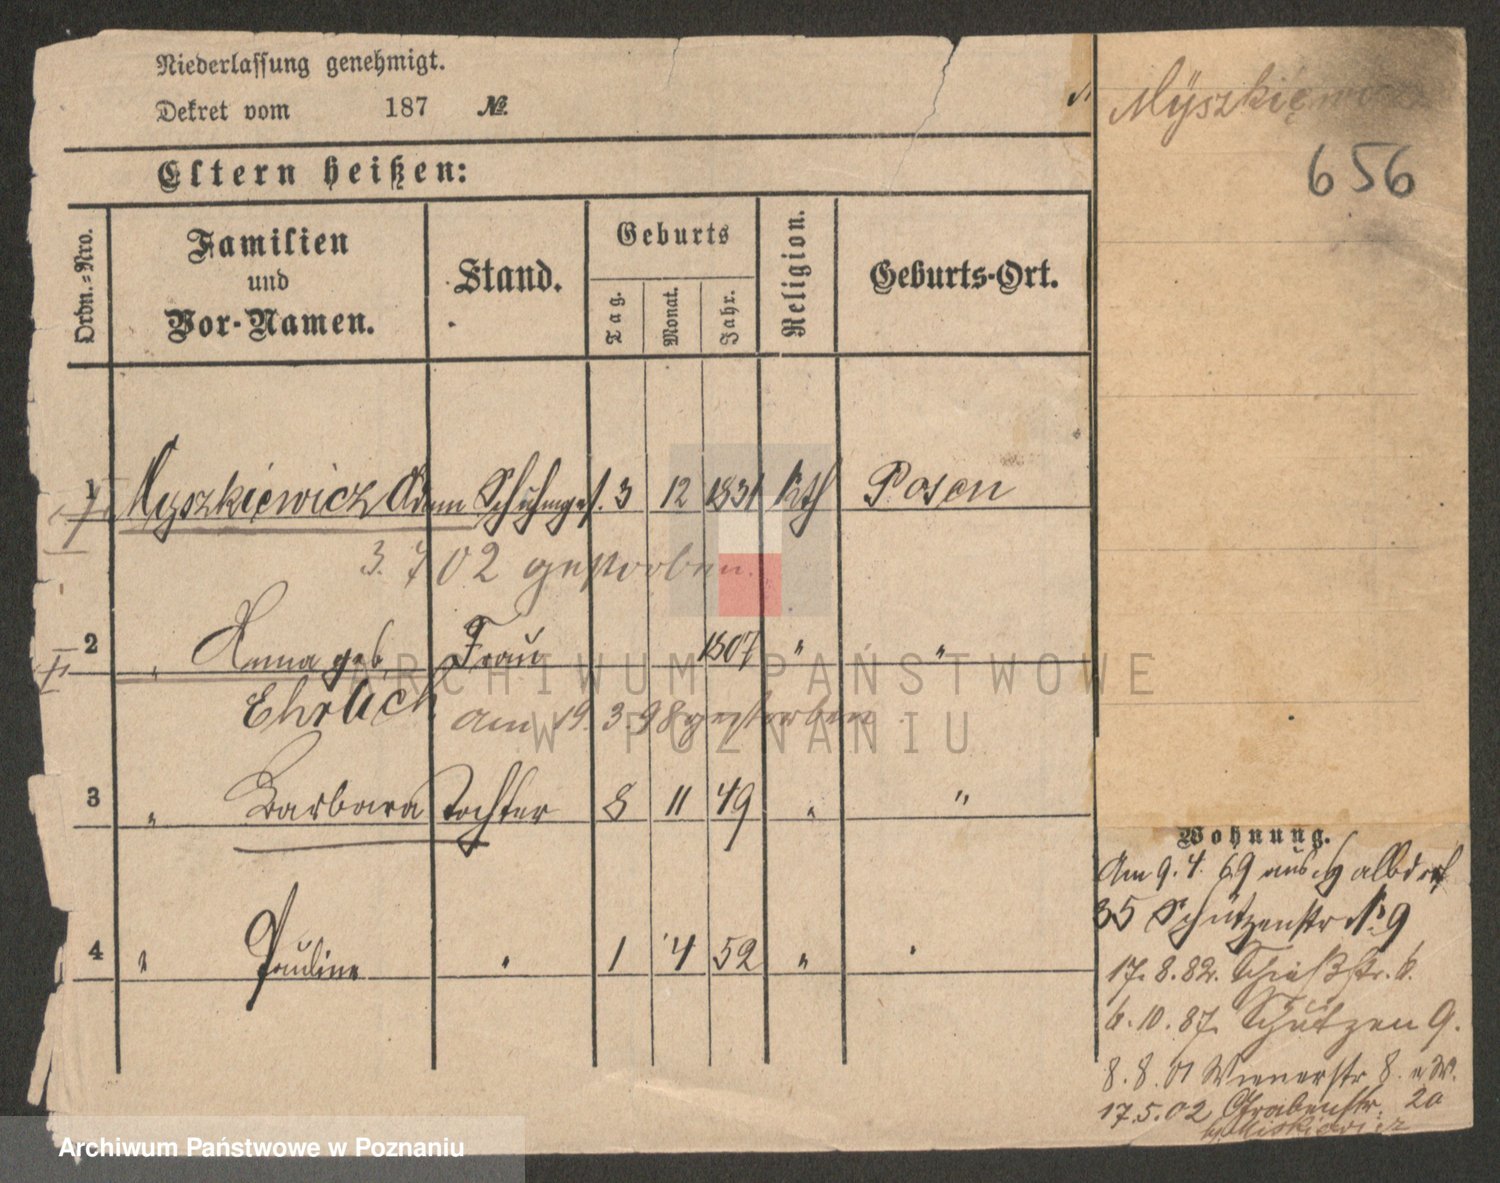 Niederlassung genehmigt.
Dekret vom 187 №.
Myszkiewicz
656
Eltern heißen:
Ordn.-Nro.
Familien und Vor-Namen.
Stand.
Geburts
Tag.
Monat.
Jahr.
Religion.
Geburts-Ort.
1 Myszkiewicz Adam Schuhmges. 3 12 1831 kth Posen
3. 7 02 gestorben.
2 " Anna geb. Frau 1807 " "
Ehrlich am 19. 3. 98 gestorben
3 " Barbara Tochter 8 11 49 " "
4 " Pauline " 1 4 52 " "
Wohnung.
Am 9. 4. 69 aus Halbdorf
35 Schützenstr № 9
17. 8. 82. Schießstr. 6.
6. 10. 87. Schützen 9.
8. 8. 01 Wienerstr 8.
17. 5. 02 Grabenstr. 20
Miskiewicz
ARCHIWUM PAŃSTWOWE
W POZNANIU
Archiwum Państwowe w Poznaniu